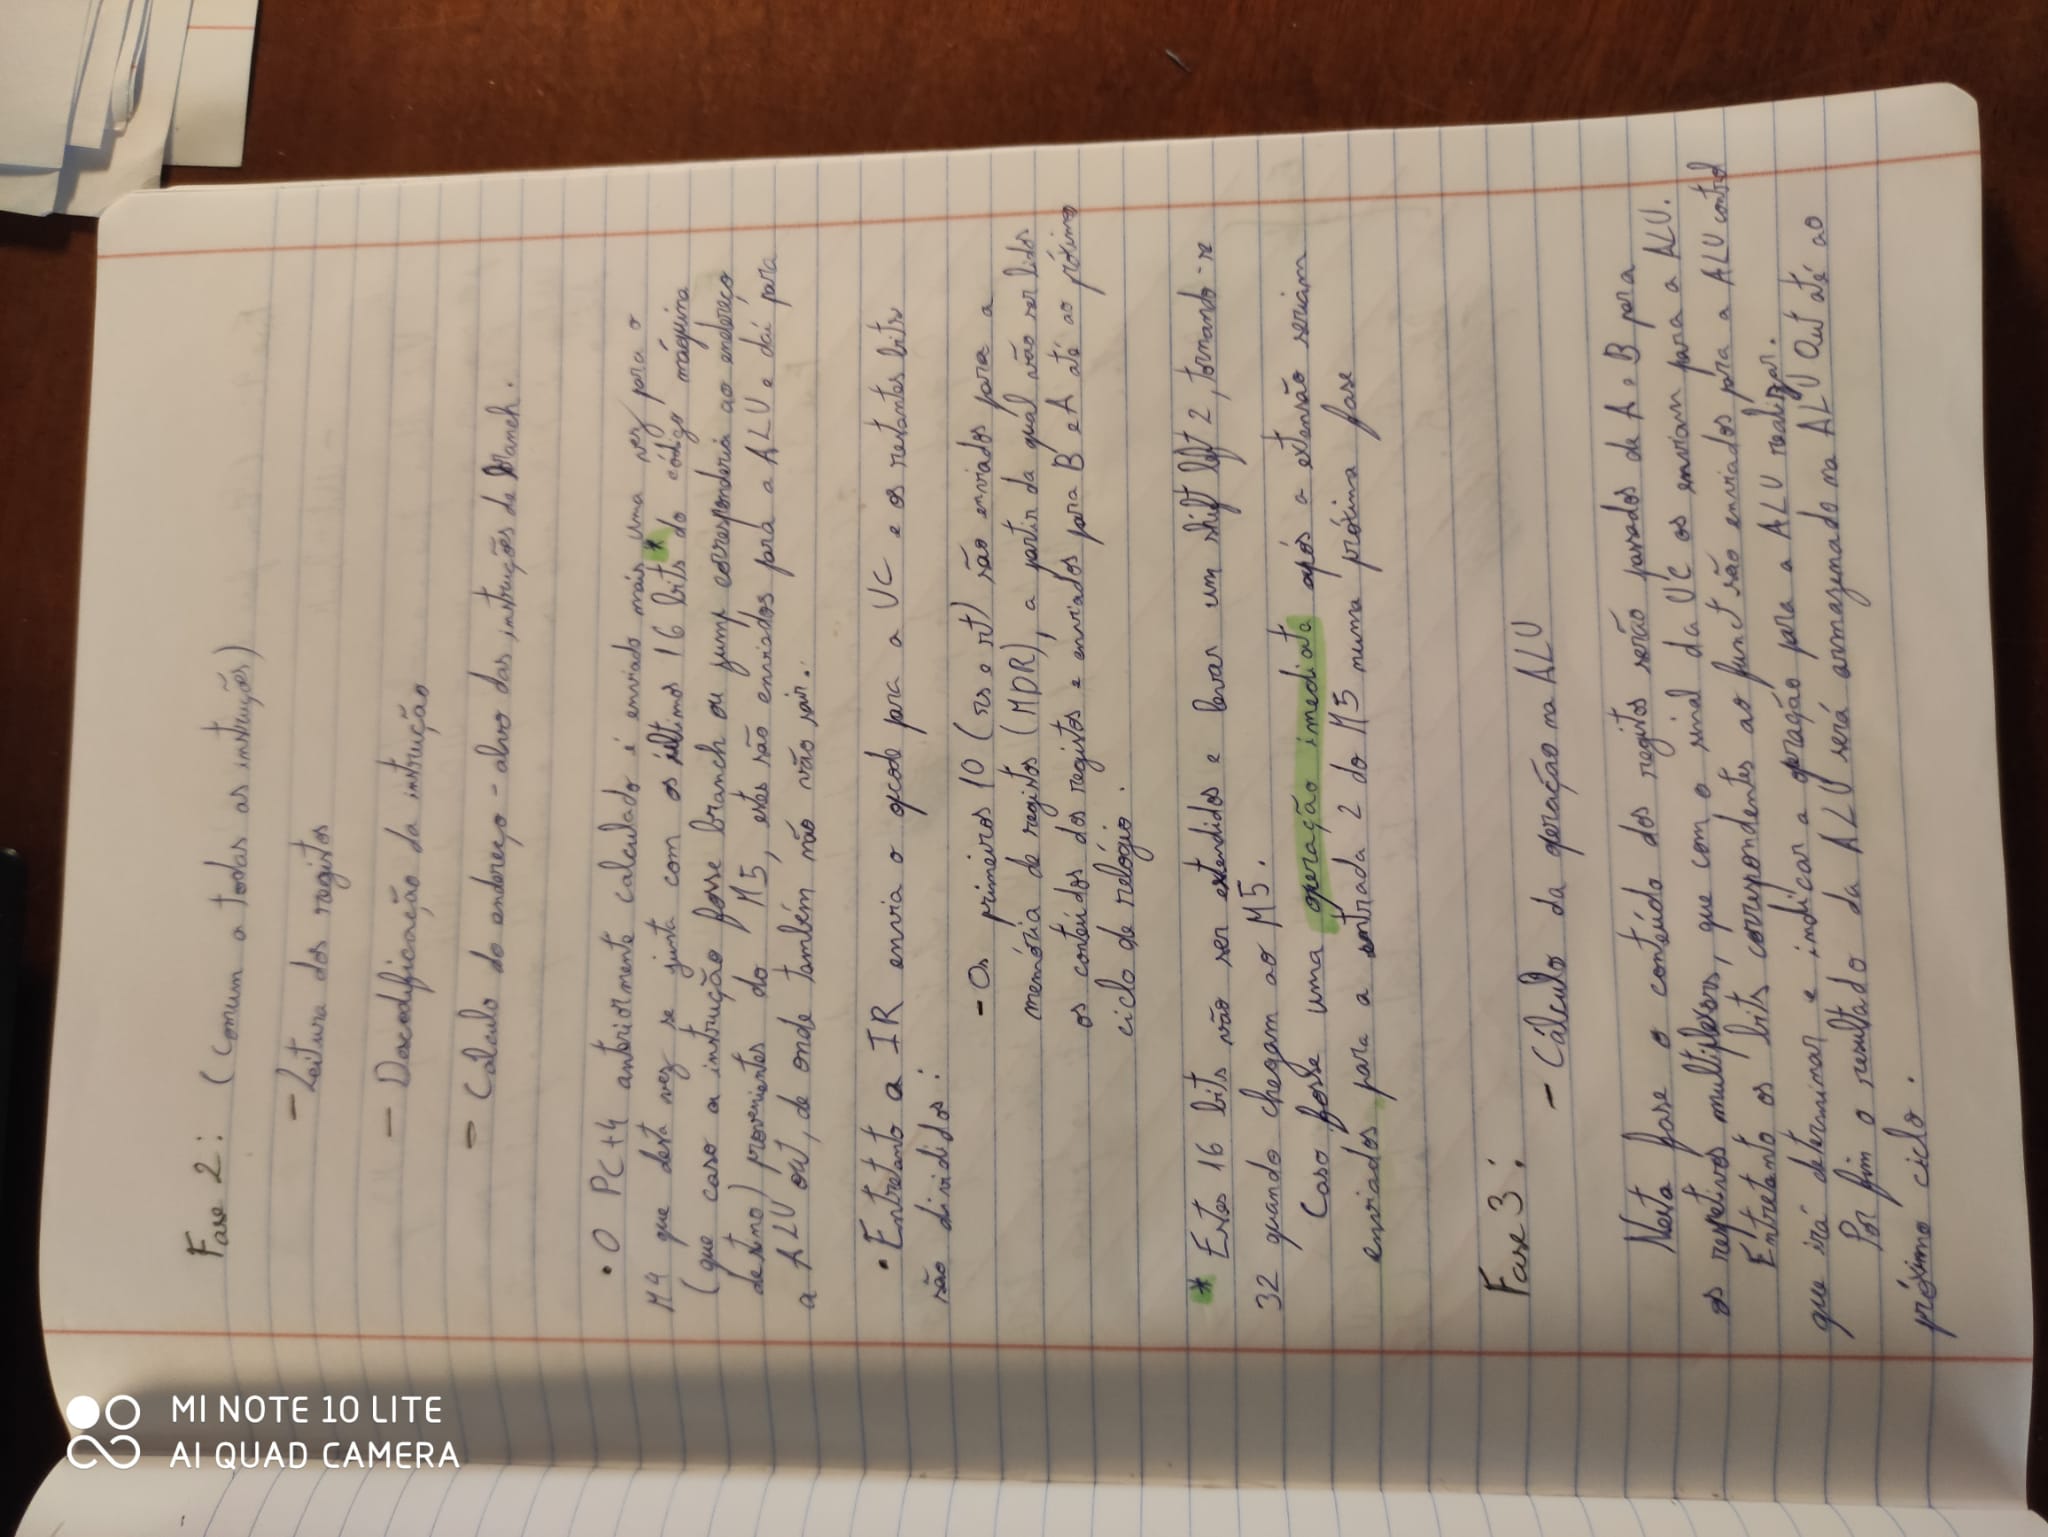 MI NOTE 10 LITE
AI QUAD CAMERA
Fase 2: (Comum a todas as instruções)
- Leitura dos registos
- Descodificação da instrução
- Cálculo do endereço - alvo das instruções de branch.
• O PC+4 anteriormente calculado é enviado mais uma vez para o
M4 que desta vez se junta com os últimos 16 bits* do código máquina
(que caso a instrução fosse branch ou jump corresponderia ao endereço
destino) provenientes do M5, estes são enviados para a ALU e daí para
a ALU out, de onde também não vão sair.
• Entretanto a IR envia o opcode para a UC e os restantes bits
são divididos:
- Os primeiros 10 (rs e rt) são enviados para a
memória de registos (MDR), a partir da qual vão ser lidos
os conteúdos dos registos e enviados para B e A até ao próximo
ciclo de relógio.
* Estes 16 bits vão ser extendidos e levar um shift left 2, tornando-se
32 quando chegam ao M5.
Caso fosse uma operação imediata após a extensão seriam
enviados para a entrada 2 do M5 numa próxima fase
Fase 3:
- Cálculo da operação na ALU
Nesta fase o conteúdo dos registos serão passados de A e B para
os respetivos multiplexers, que com o sinal da UC os enviam para a ALU.
Entretanto os bits correspondentes ao funct são enviados para a ALU control
que irá determinar e indicar a operação para a ALU realizar.
Por fim o resultado da ALU será armazenado na ALU Out até ao
próximo ciclo.